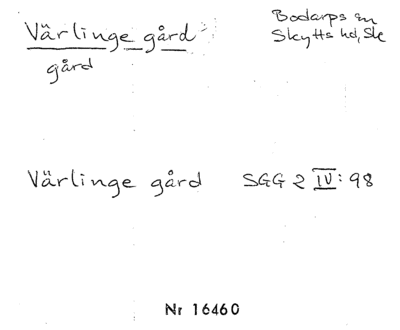 Värlinge gård
Bodarps sn
Skytts hd, Sk
gård
Värlinge gård SGG 2 IV: 98
Nr 16460